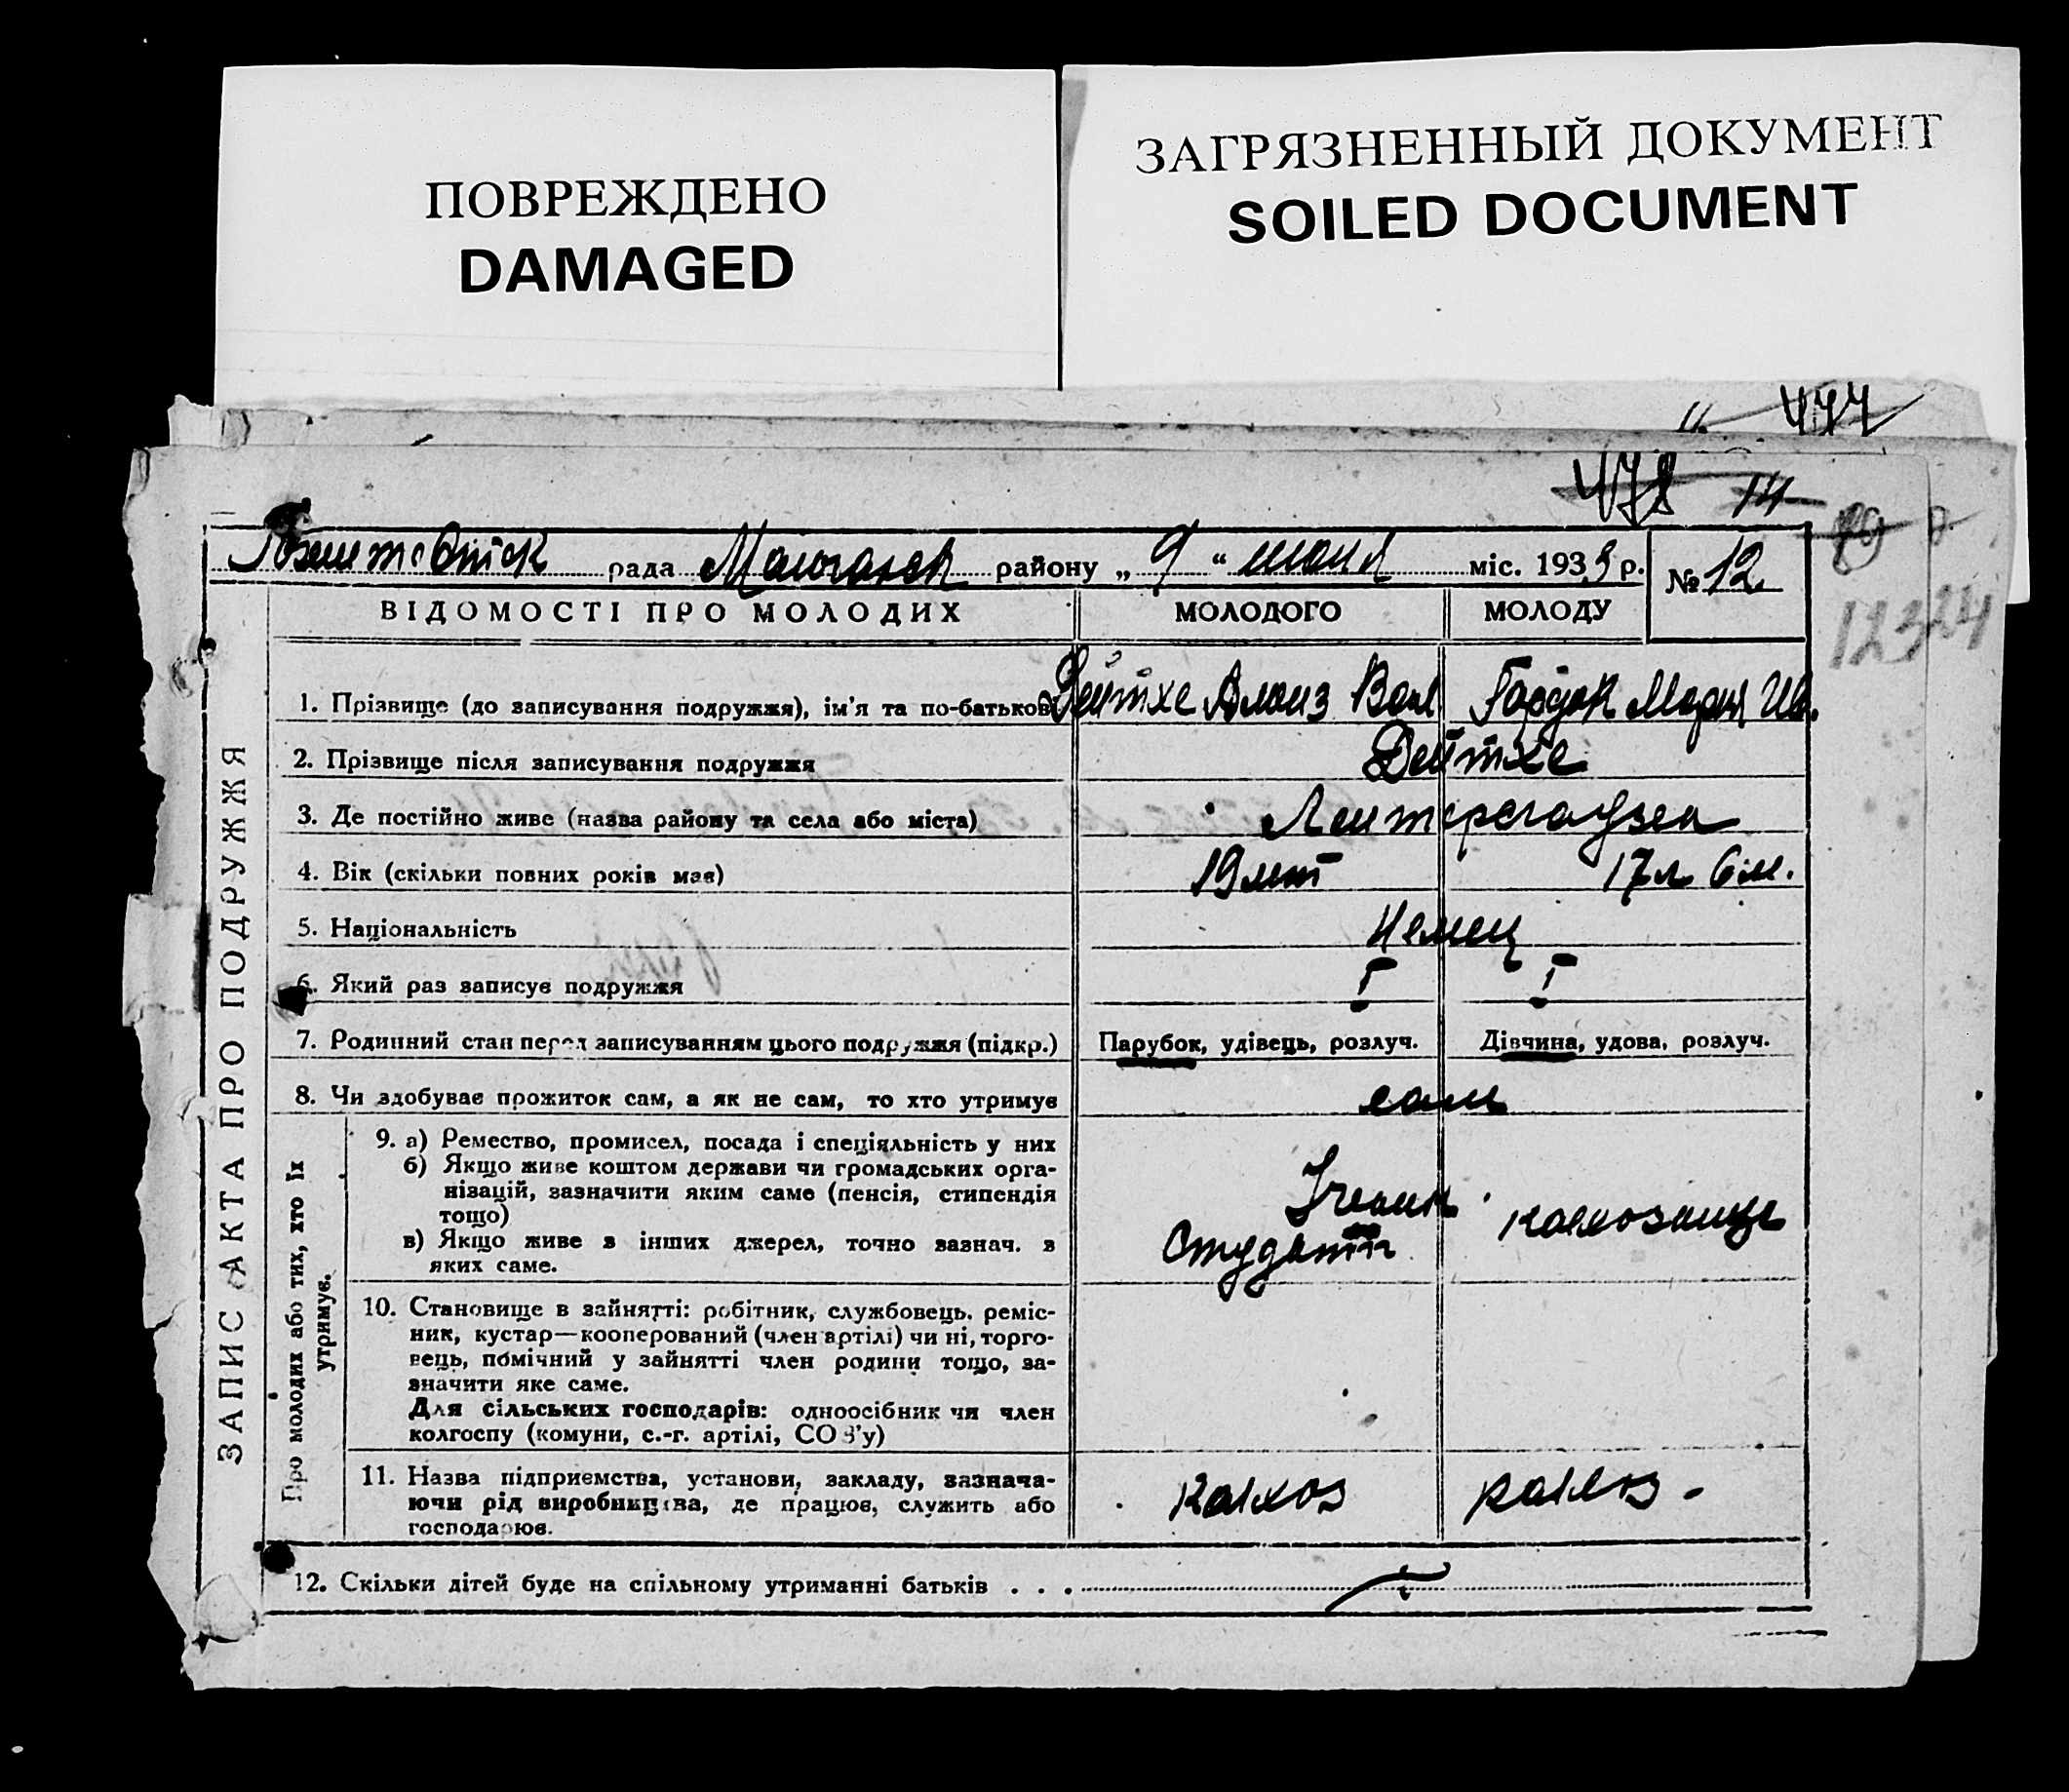 ПОВРЕЖДЕНО
DAMAGED
ЗАГРЯЗНЕННЫЙ ДОКУМЕНТ
SOILED DOCUMENT
477
478 14
рада району „ 9 “ міс. 193 р. № 12
ВІДОМОСТІ ПРО МОЛОДИХ МОЛОДОГО МОЛОДУ
12324
ЗАПИС АКТА ПРО ПОДРУЖЖЯ
1. Прізвище (до записування подружжя), ім'я та по-батькові Алоиз Мария
2. Прізвище після записування подружжя Дейтхе
3. Де постійно живе (назва району та села або міста)
4. Вік (скільки повних років має) 19 лет 17 л 6 м.
5. Національність Немец
6. Який раз записує подружжя I I
7. Родинний стан перед записуванням цього подружжя (підкр.) Парубок, удівець, розлуч. Дівчина, удова, розлуч.
8. Чи здобуває прожиток сам, а як не сам, то хто утримує сам
Про молодих або тих, хто їх утримує.
9. а) Ремество, промисел, посада і спеціяльність у них
б) Якщо живе коштом держави чи громадських орга-
нізацій, зазначити яким саме (пенсія, стипендія
тощо)
в) Якщо живе з інших джерел, точно зазнач. з
яких саме.
10. Становище в зайнятті: робітник, службовець, реміс-
ник, кустар—кооперований (член артілі) чи ні, торго-
вець, помічний у зайнятті член родини тощо, за-
значити яке саме.
Для сільських господарів: одноосібник чи член
колгоспу (комуни, с.-г. артілі, СОЗ'у)
11. Назва підприємства, установи, закладу, зазнача-
ючи рід виробництва, де працює, служить або
господарює.
колхоз колхоз
12. Скільки дітей буде на спільному утриманні батьків . . .